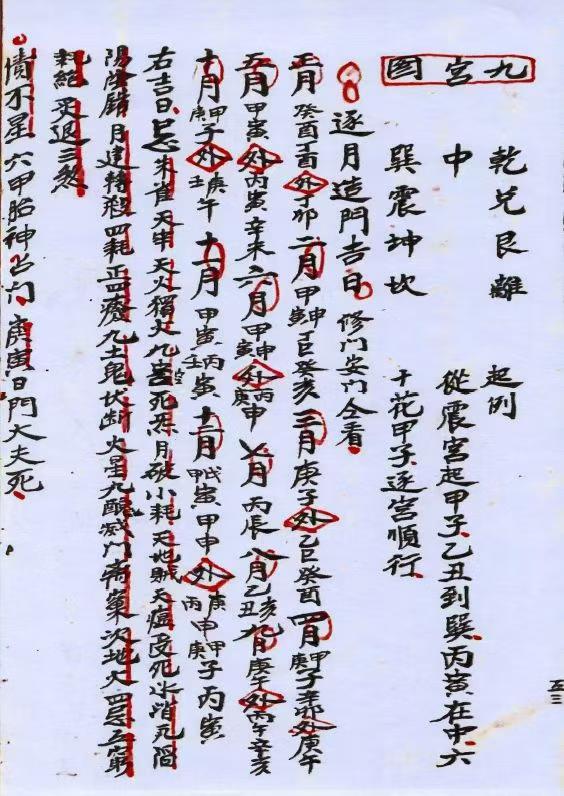 九宫图
乾兑艮離 起例
中 從震宫起甲子乙丑到巽丙寅在中六
巽震坤坎 十花甲子逐宫順行
逐月造門吉日 修门安门仝看
正月癸酉丁酉外丁卯二月甲寅申丁巳癸亥三月庚子外乙巳癸酉四月甲庚子辛卯外庚午
五月甲寅外丙寅辛未六月甲寅申外丙庚申七月丙辰八月乙丑亥九月庚午外丙午辛亥
十月甲庚子外庚壬午十一月甲寅丙壬寅十二月甲戊寅甲申外庚丙申甲庚子丙寅
右吉日忌朱雀天牢天火獨火九空死炁月破小耗天地賊天瘟受死氷消瓦陷
陰陽錯月建轉殺四耗正四廢九土鬼伏断火星九醜滅门离窠次地火四忌五窮
耗絕灾退三煞
債不星六甲胎神占门庚寅日門大夫死
五三